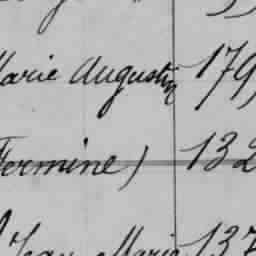 Marie Augustin 179
Fermine) 132
Jean Marie 137